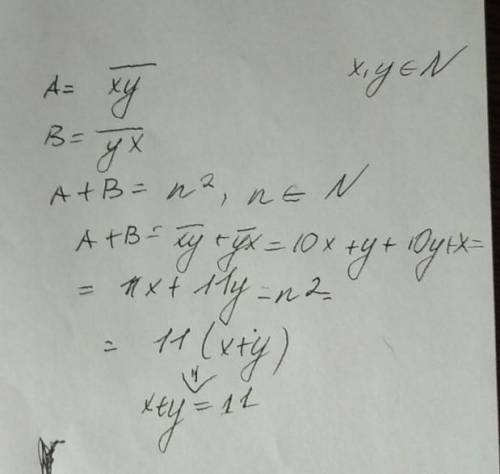 A = \overline{xy} x, y ∈ N
B = \overline{yx}
A + B = n², n ∈ N
A + B = \overline{xy} + \overline{yx} = 10x + y + 10y + x =
= 11x + 11y = n² =
= 11 (x + y)
x + y = 11